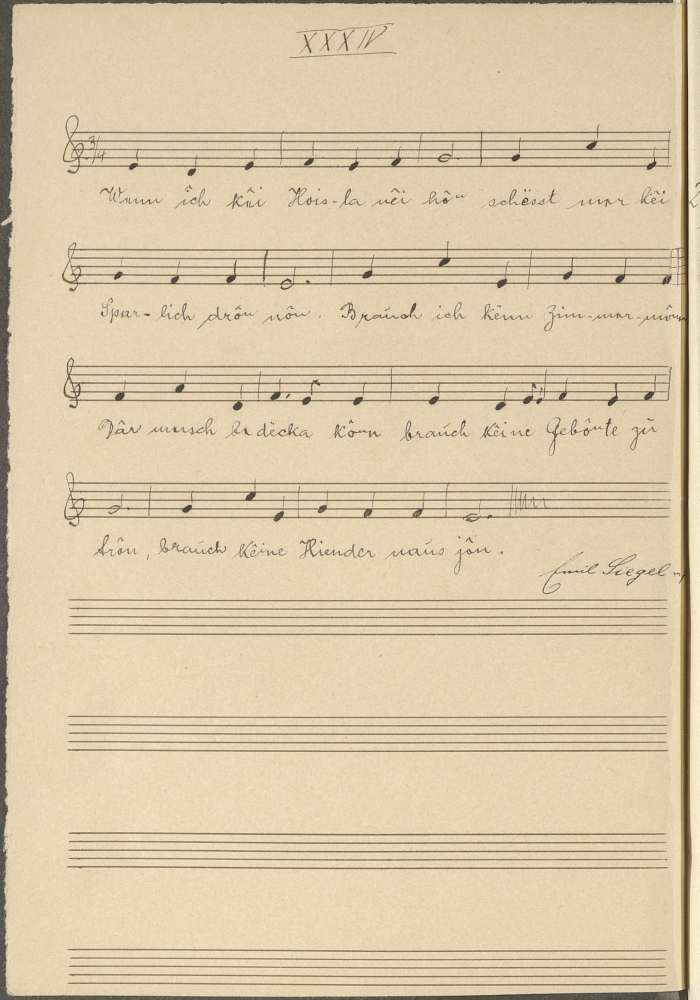 XXXIV
3/4
Wenn ich këi Hois-la nëi hôn schësst mer këi
Spar-lich drôn nôn. Brauch ich kënn Zim-mer-môn
Dâr mersch be dècka kônn brauch këine Gebônte zü
trôn, brauch këine Kiender naus jôn.
Emil Siegel